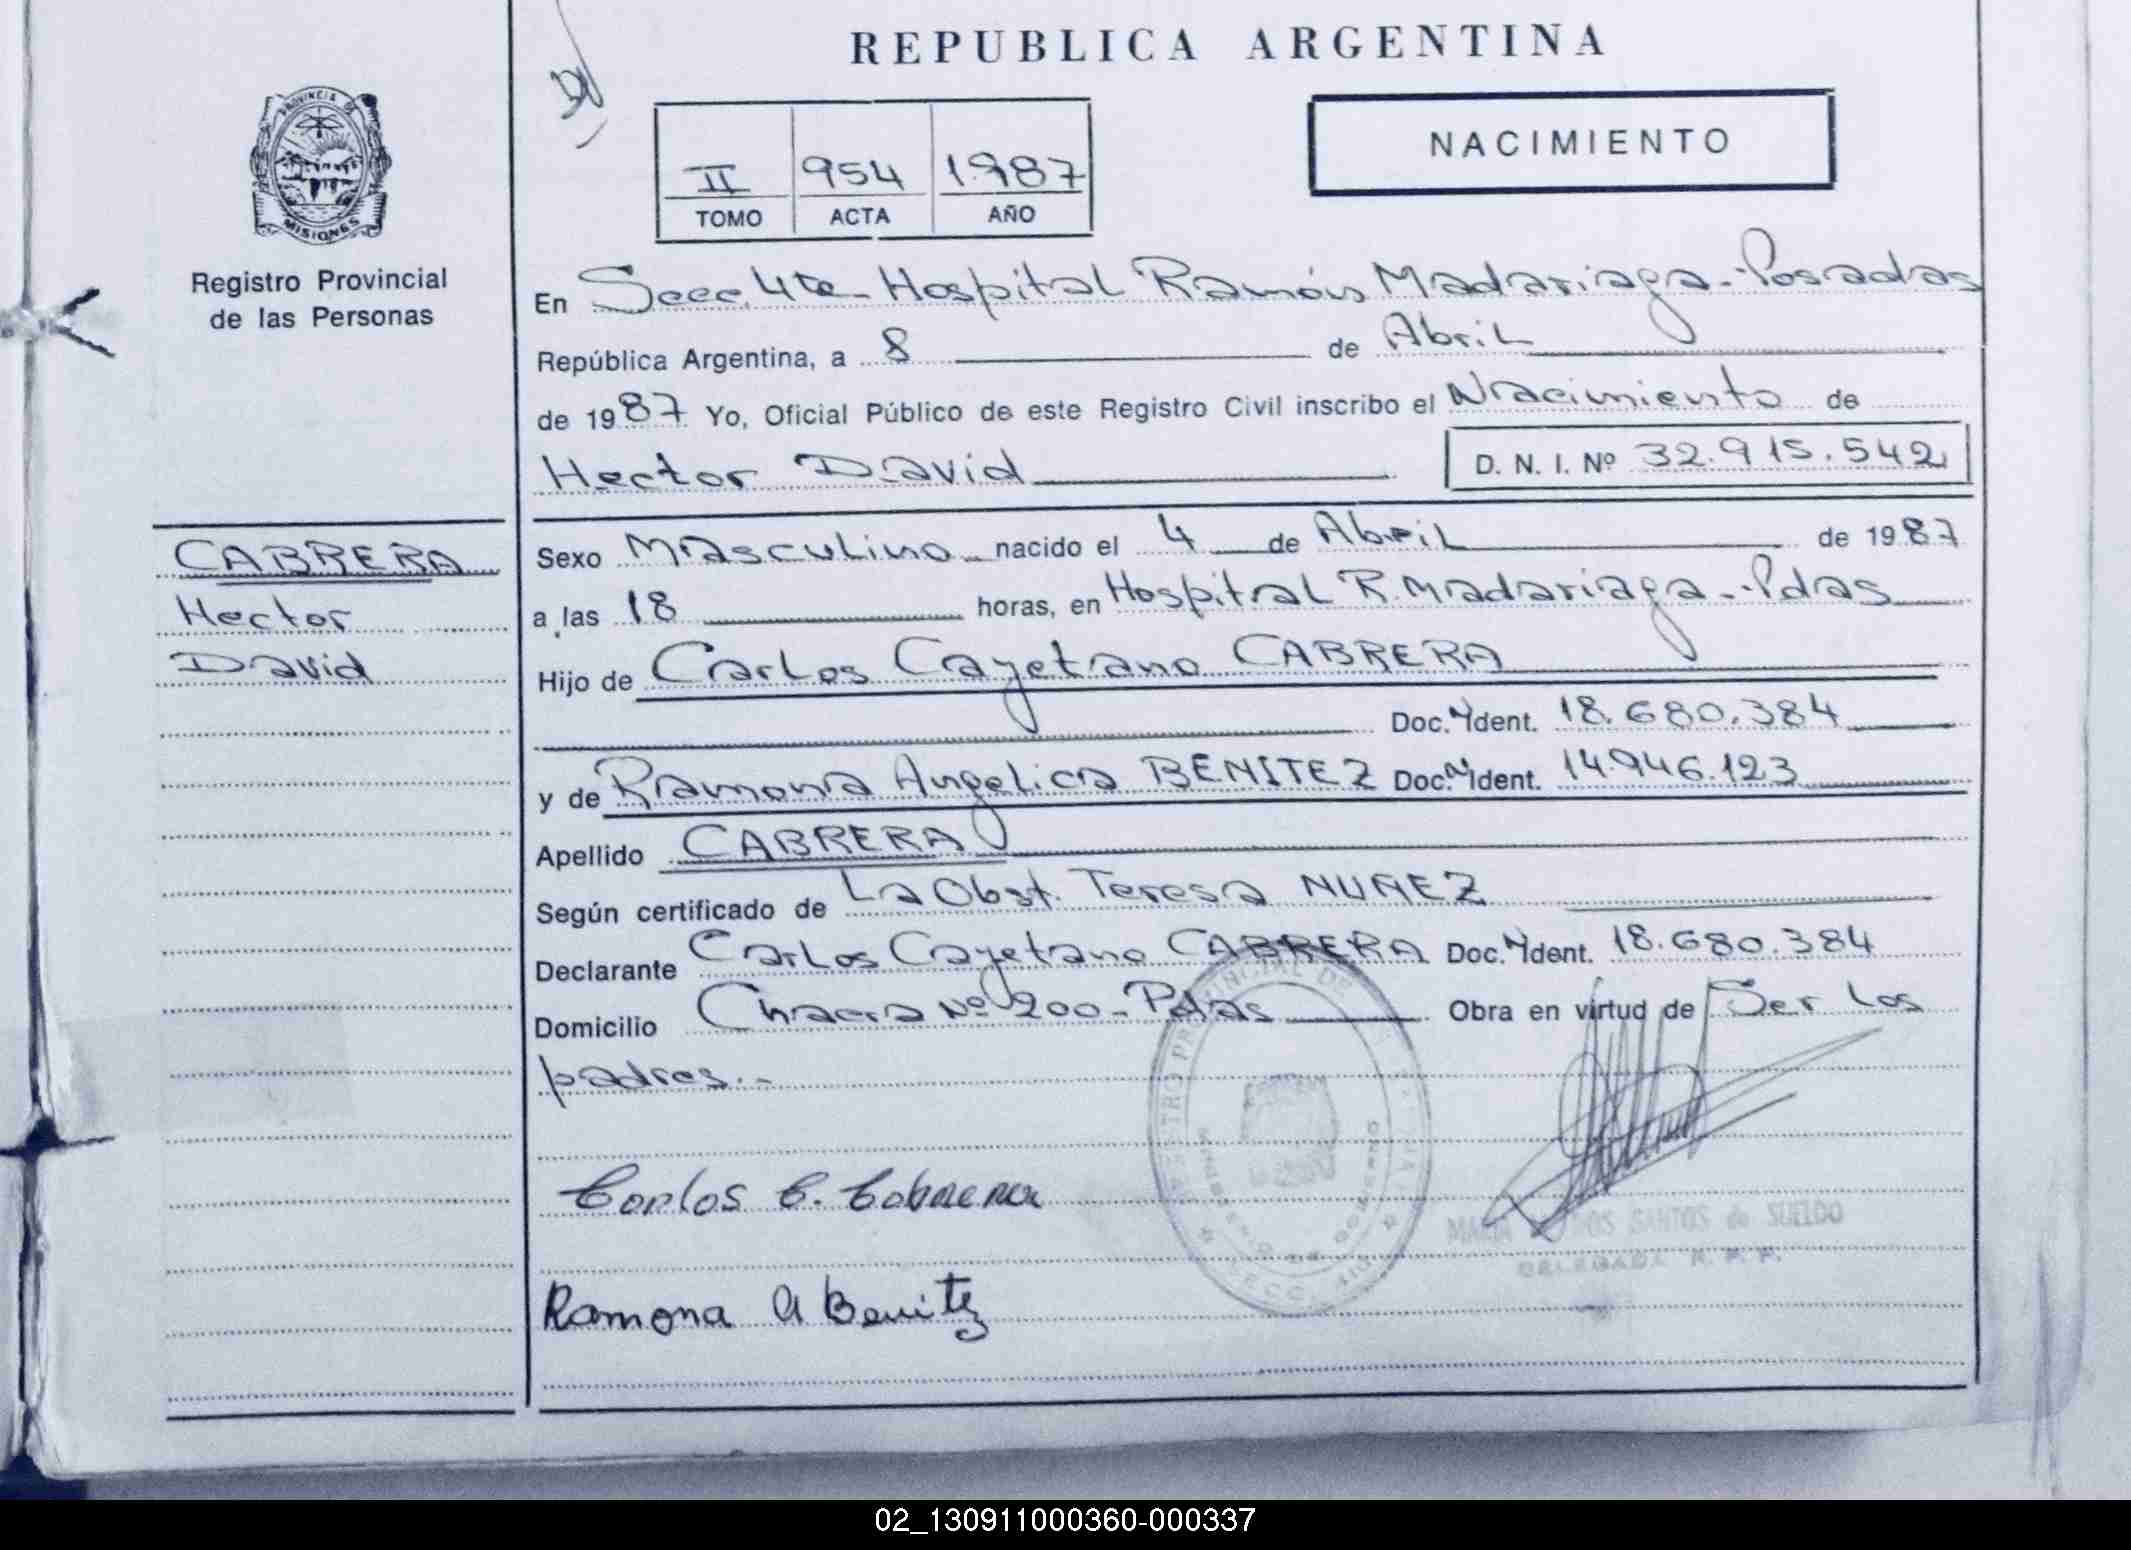 REPUBLICA ARGENTINA
PROVINCIA DE
MISIONES
Registro Provincial
de las Personas
II 954 1987
TOMO ACTA AÑO
NACIMIENTO
En Secc. 4ta - Hospital Ramón Madariaga - Posadas
República Argentina, a 8 de Abril
de 1987 Yo, Oficial Público de este Registro Civil inscribo el Nacimiento de
Hector David D. N. I. Nº 32.915.542
CABRERA
Hector
David
Sexo Masculino nacido el 4 de Abril de 1987
a las 18 horas, en Hospital R. Madariaga - Pdas
Hijo de Carlos Cayetano CABRERA
Doc. Ident. 18.680.384
y de Ramona Angelica BENITEZ Doc. Ident. 14.946.123
Apellido CABRERA
Según certificado de La Obst. Teresa NUÑEZ
Declarante Carlos Cayetano CABRERA Doc. Ident. 18.680.384
Domicilio Chacra Nº 200 - Pdas Obra en virtud de Ser los
padres.-
Carlos C. Cabrera
SANTOS de SUELDO
DELEGADA R. P. P.
Ramona A Benitez
02_130911000360-000337